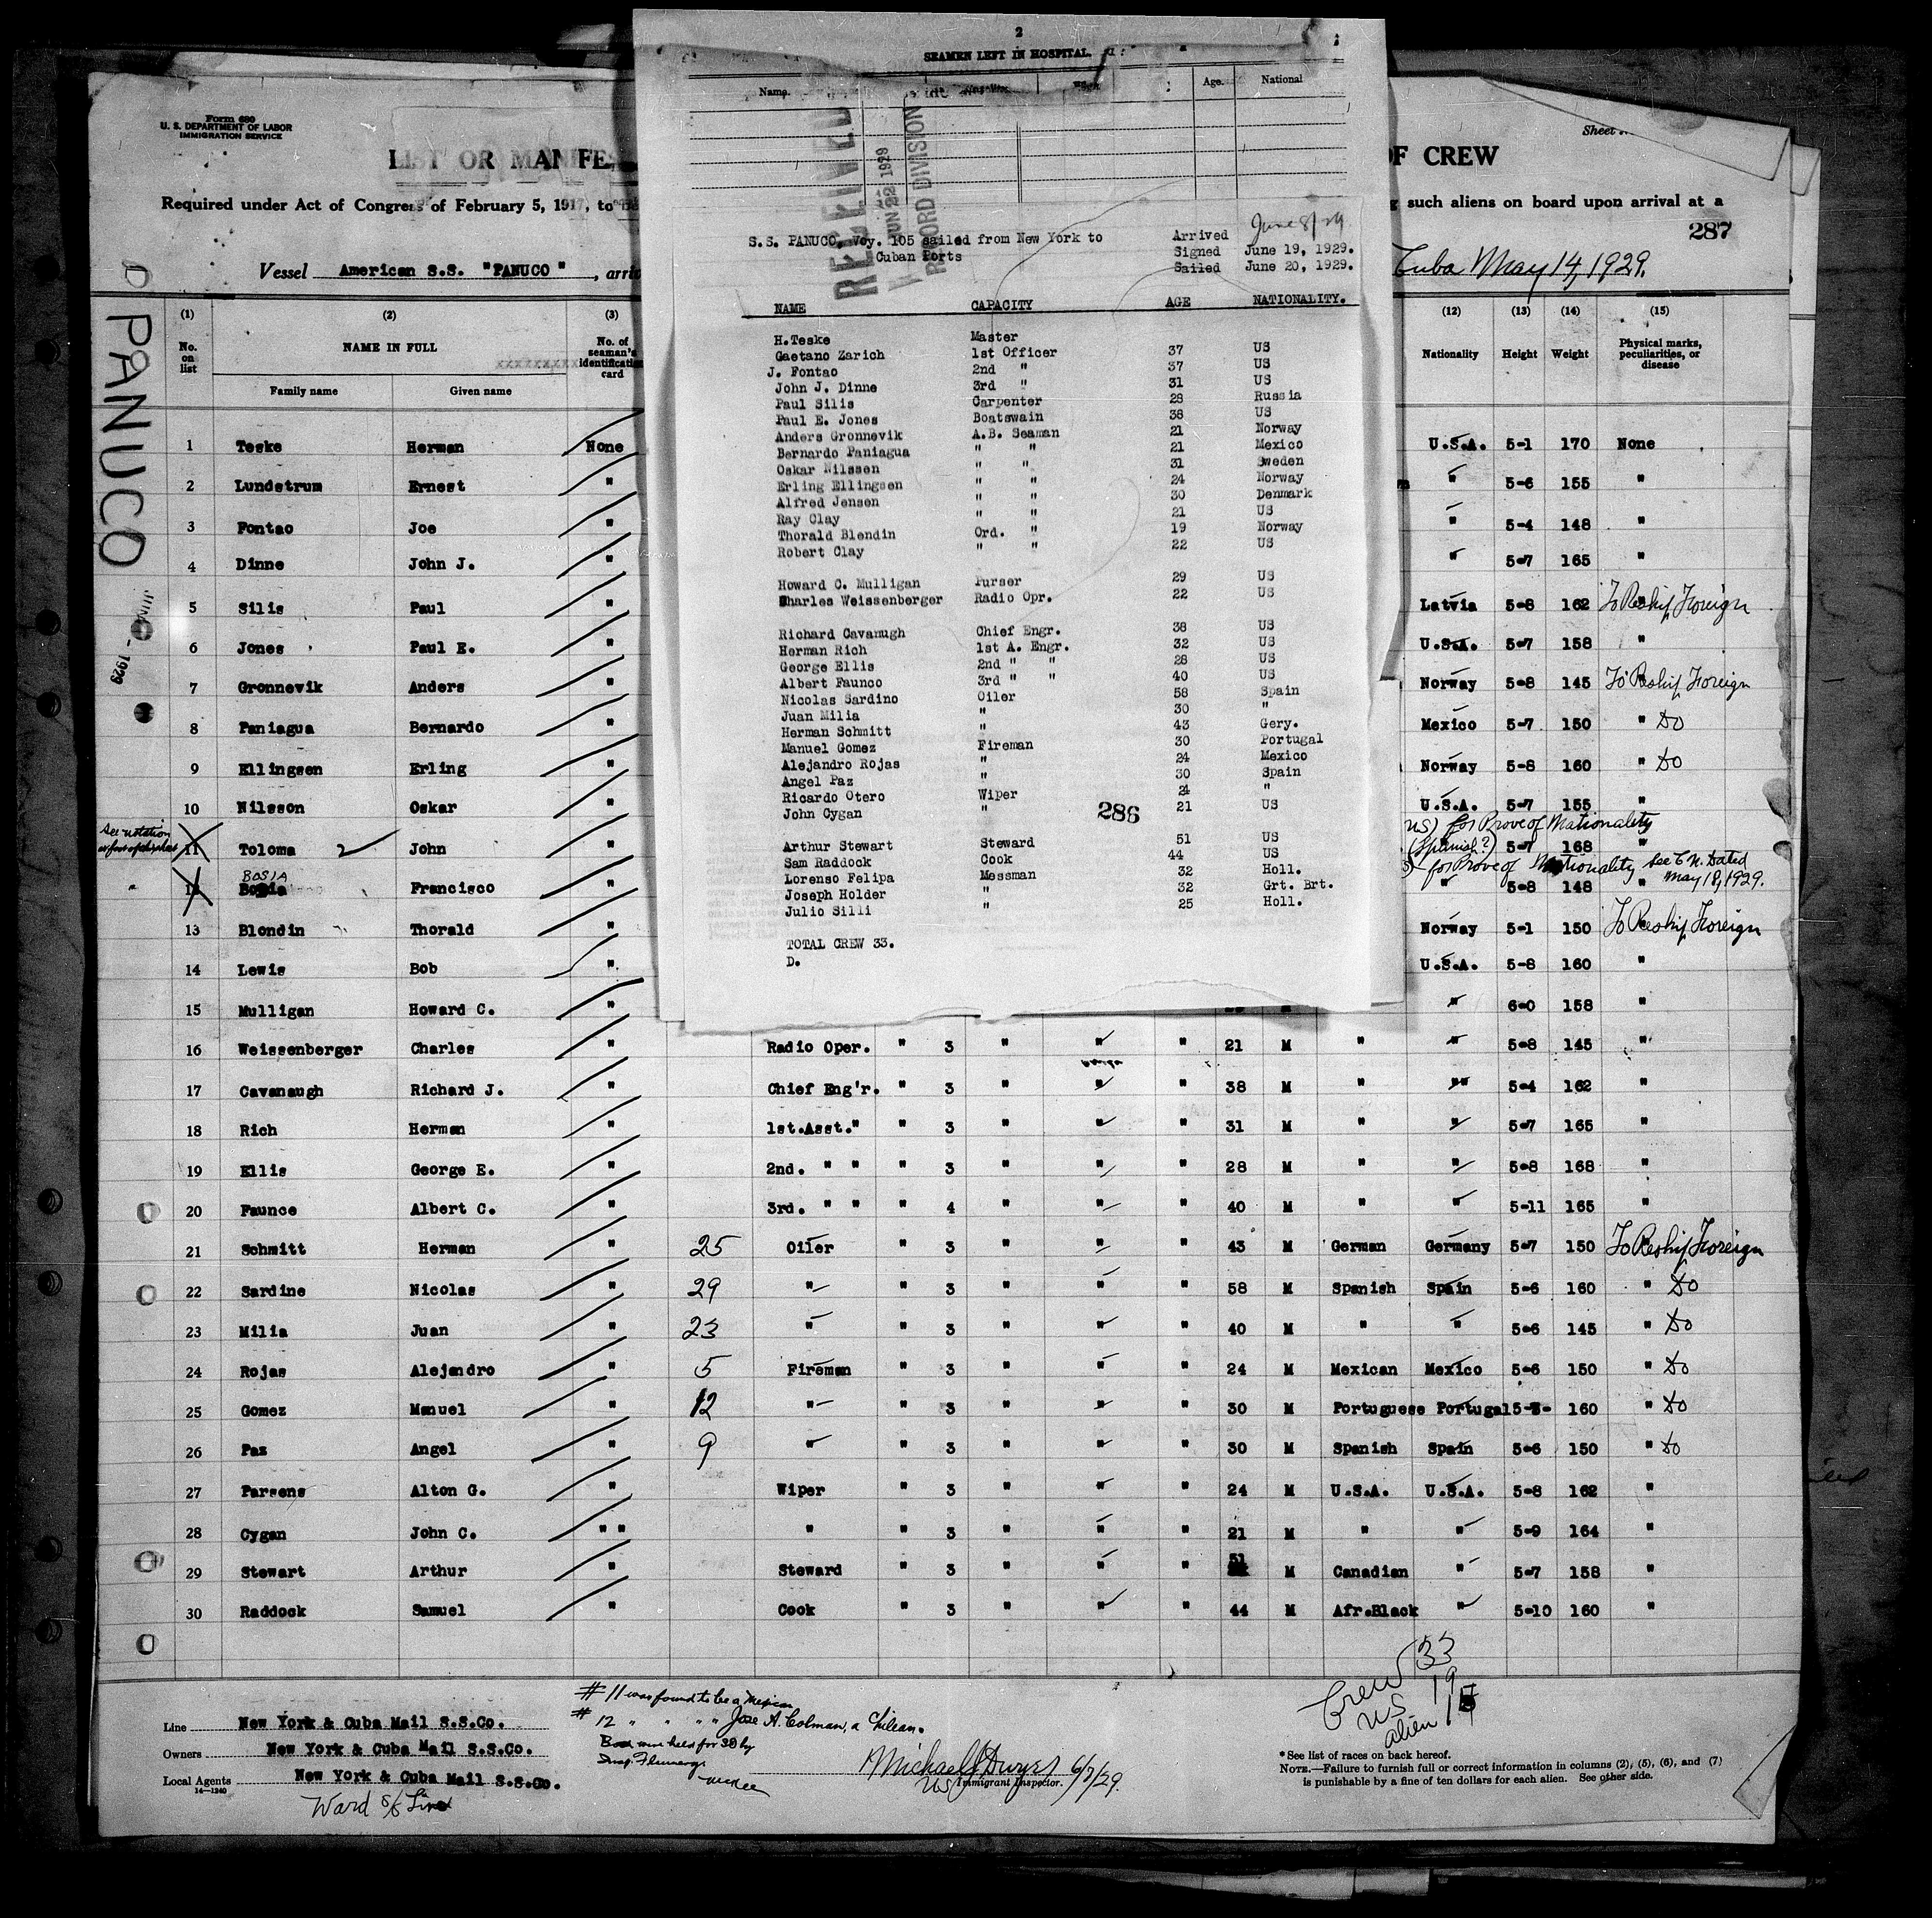 Form 680
U. S. DEPARTMENT OF LABOR
IMMIGRATION SERVICE
LIST OR MANIFE
OF CREW
Required under Act of Congress of February 5, 1917, to
such aliens on board upon arrival at a
287
Vessel American S.S. "PANUCO", arri
Cuba May 14, 1929.
PANUCO
(1) (2) (3) (12) (13) (14) (15)
No. on list
NAME IN FULL
Family name Given name
No. of seaman's identification card
Nationality Height Weight Physical marks, peculiarities, or disease
1 Teske Herman None U.S.A. 5-1 170 None
2 Lundstrum Ernest " " 5-6 155 "
3 Fontao Joe " " 5-4 148 "
4 Dinne John J. " " 5-7 165 "
5 Silis Paul " Latvia 5-8 162 " To Reship Foreign
6 Jones Paul E. " U.S.A. 5-7 158 "
7 Gronnevik Anders " Norway 5-8 145 " To Reship Foreign
8 Paniagua Bernardo " Mexico 5-7 150 " Do
9 Ellingsen Erling " Norway 5-8 160 " Do
10 Nilsson Oskar " U.S.A. 5-7 155 "
US) for Prove of Nationality
See notation at foot of this sheet
11 Toloma John " (Spanish?) 5-7 168 "
for Prove of Nationality See C.N. Dated May 18, 1929.
BOSIA
12 Francisco " " 5-8 148 "
13 Blondin Thorald " Norway 5-1 150 To Reship Foreign
14 Lewis Bob " U.S.A. 5-8 160 "
15 Mulligan Howard C. " " 6-0 158 "
16 Weissenberger Charles " Radio Oper. " 3 " " " 21 M " " 5-8 145 "
17 Cavanaugh Richard J. " Chief Eng'r. " 3 " " " 38 M " " 5-4 162 "
18 Rich Herman " 1st.Asst." " 3 " " " 31 M " " 5-7 165 "
19 Ellis George E. " 2nd. " " " 3 " " " 28 M " " 5-8 168 "
20 Faunce Albert C. " 3rd. " " " 4 " " " 40 M " " 5-11 165 "
21 Schmitt Herman " 25 Oiler " 3 " " " 43 M German Germany 5-7 150 To Reship Foreign
22 Sardine Nicolas " 29 " " 3 " " " 58 M Spanish Spain 5-6 160 " Do
23 Milia Juan " 23 " " 3 " " " 40 M " " 5-6 145 " Do
24 Rojas Alejandro " 5 Fireman " 3 " " " 24 M Mexican Mexico 5-6 150 " Do
25 Gomez Manuel " 12 " " 3 " " " 30 M Portuguese Portugal 160 " Do
26 Paz Angel " 9 " " 3 " " " 30 M Spanish Spain 5-6 150 " Do
27 Parsens Alton G. " Wiper " 3 " " " 24 M U.S.A. U.S.A. 5-8 162 "
28 Cygan John C. " " " " 3 " " " 21 M " " 5-9 164 "
29 Stewart Arthur " Steward " 3 " " " 51 M Canadian " 5-7 158 "
30 Raddock Samuel " Cook " 3 " " " 44 M Afr.Black " 5-10 160 "
Crew 33
US 19
alien 14
Line New York & Cuba Mail S.S.Co.
Owners New York & Cuba Mail S.S.Co.
Local Agents New York & Cuba Mail S.S.Co.
14-1240
Ward S/S Line
# 11 was found to be a Mexican
# 12 " " " " Jose A. Colman, a Chilean.
Both were held for 30 by
Insp. Flemming
Michael J Dwyer 6/7/29.
US Immigrant Inspector.
* See list of races on back hereof.
NOTE.—Failure to furnish full or correct information in columns (2), (5), (6), and (7)
is punishable by a fine of ten dollars for each alien. See other side.
2
SEAMEN LEFT IN HOSPITAL.
Name. Age. National
RECEIVED
JUN 22 1929
RECORD DIVISION
June 8/29
S.S. PANUCO, Voy. 105 sailed from New York to Arrived
Cuban Ports Signed June 19, 1929.
Sailed June 20, 1929.
NAME CAPACITY AGE NATIONALITY.
H.Teske Master
Gaetano Zarich 1st Officer 37 US
J. Fontao 2nd " 37 US
John J. Dinne 3rd " 31 US
Paul Silis Carpenter 28 Russia
Paul E. Jones Boatswain 38 US
Anders Gronnevik A.B. Seaman 21 Norway
Bernardo Paniagua " " 21 Mexico
Oskar Nilssen " " 31 Sweden
Erling Ellingsen " " 24 Norway
Alfred Jensen " " 30 Denmark
Ray Clay " " 21 US
Thorald Blendin Ord. " 19 Norway
Robert Clay " " 22 US
Howard C. Mulligan Purser 29 US
Charles Weissenberger Radio Opr. 22 US
Richard Cavanugh Chief Engr. 38 US
Herman Rich 1st A. Engr. 32 US
George Ellis 2nd " " 28 US
Albert Faunco 3rd " " 40 US
Nicolas Sardino Oiler 58 Spain
Juan Milia " 30 "
Herman Schmitt " 43 Gery.
Manuel Gomez Fireman 30 Portugal
Alejandro Rojas " 24 Mexico
Angel Paz " 30 Spain
Ricardo Otero Wiper 24 "
John Cygan " 21 US
286
Arthur Stewart Steward 51 US
Sam Raddock Cook 44 US
Lorenso Felipa Messman 32 Holl.
Joseph Holder " 32 Grt. Brt.
Julio Silli " 25 Holl.
TOTAL CREW 33.
D.